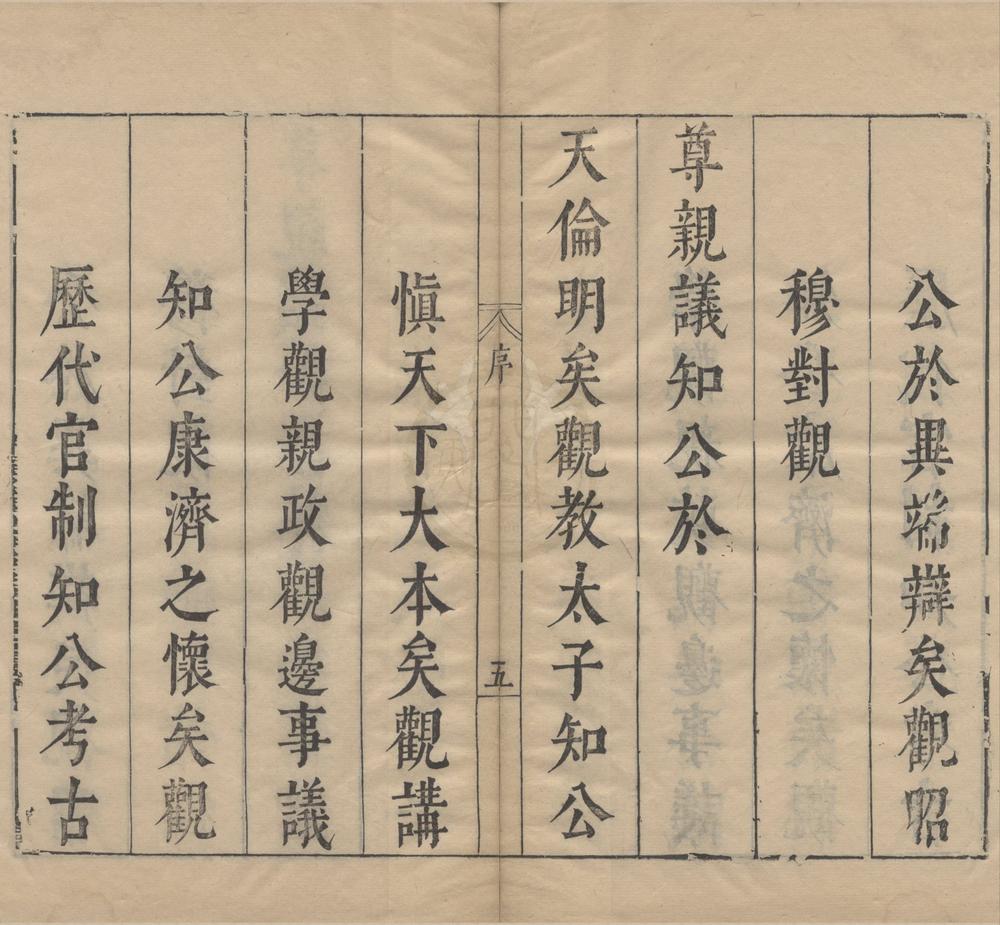 公於異端辯矣觀昭
穆對觀
尊親議知公於
天倫明矣觀教太子知公
序
五
慎天下大本矣觀講
學觀親政觀邊事議
知公康濟之懷矣觀
歷代官制知公考古